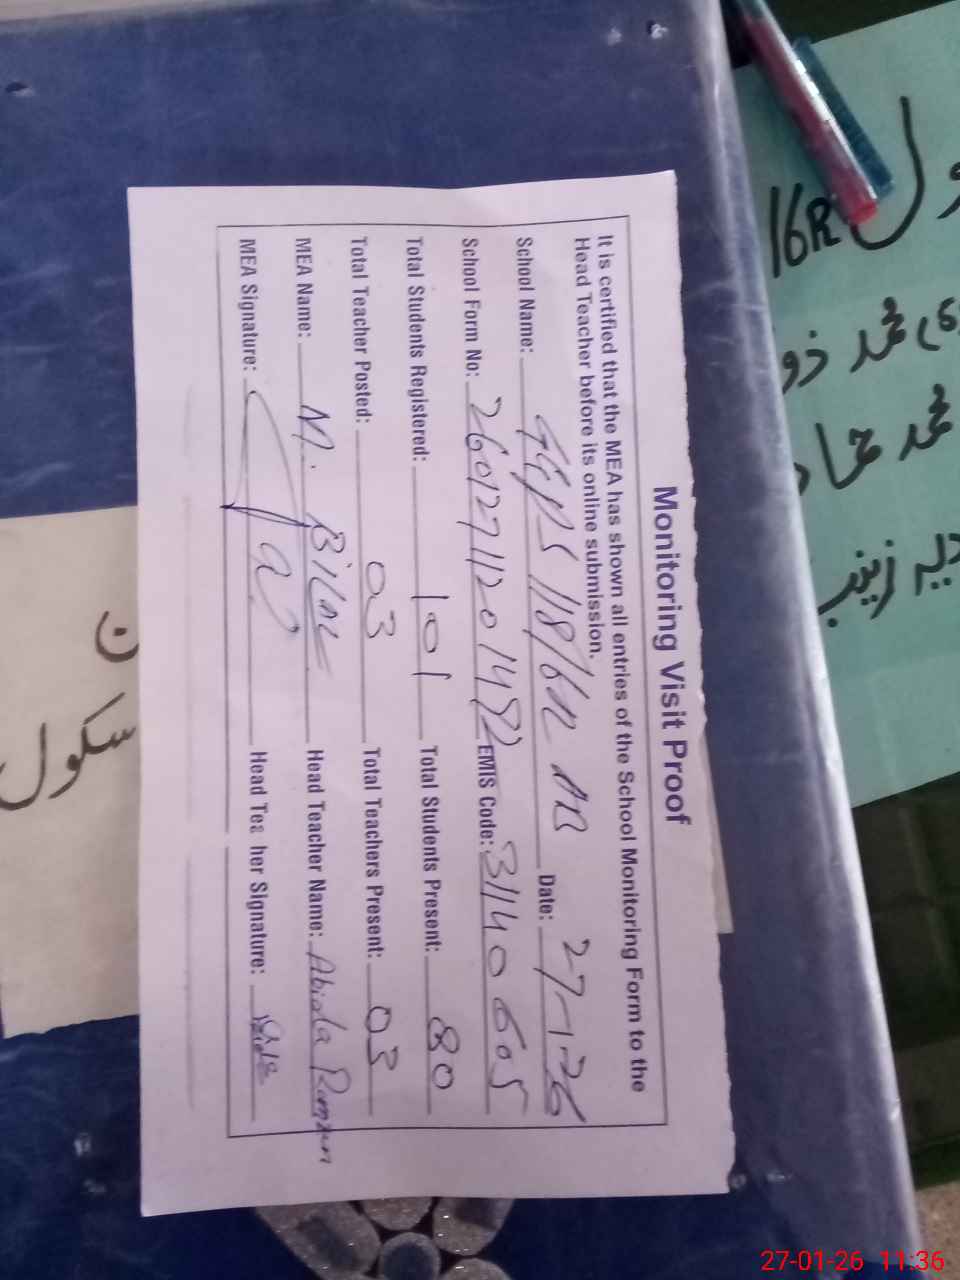 Monitoring Visit Proof
It is certified that the MEA has shown all entries of the School Monitoring Form to the
Head Teacher before its online submission.
School Name: 118/6R Date: 27-1-26
School Form No: EMIS Code: 31140605
Total Students Registered: 101 Total Students Present: 80
Total Teacher Posted: 03 Total Teachers Present: 03
MEA Name: M. Bilal Head Teacher Name: Abida
MEA Signature: Head Tea her Signature:
16R
محمد
محمد
زینب
سکول
27-01-26 11:36